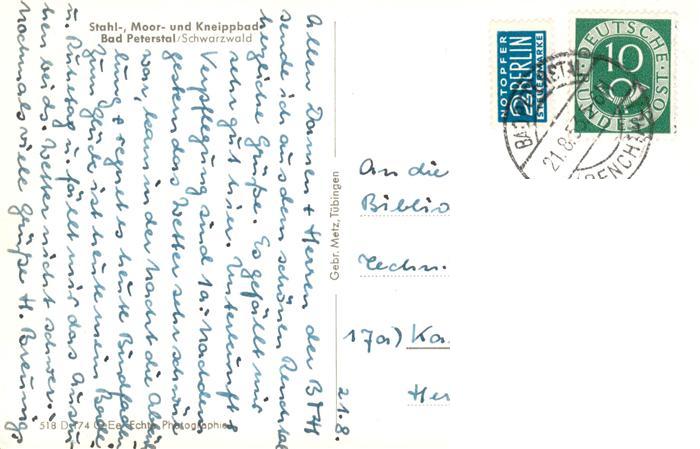 Stahl-, Moor- und Kneippbad
Bad Peterstal/Schwarzwald
Allen Damen + Herren der BTH
sende ich aus dem schönen Renchtal
herzliche Grüße. Es gefällt mir
sehr gut hier. Unterkunft &
Verpflegung sind 1a. Nachdem
gestern das Wetter sehr schwül
war, kam in der Nacht die Abküh
lung + regnet es heute Bindfaden
zum Glück ist heute mein Bade-
u. Ruhetag u. fällt mir das Ausru
hen beids. Wetter nicht schwer.
Nochmals viele Grüße H. Breunig
21.8.
518 D 174 Echte Photographie
Gebr. Metz, Tübingen
NOTOPFER
2 BERLIN
STEUERMARKE
DEUTSCHE
10
BUNDESPOST
BAD
21.8.5
RENCH
An die
Biblio
Techn.
17a) Ka
Her